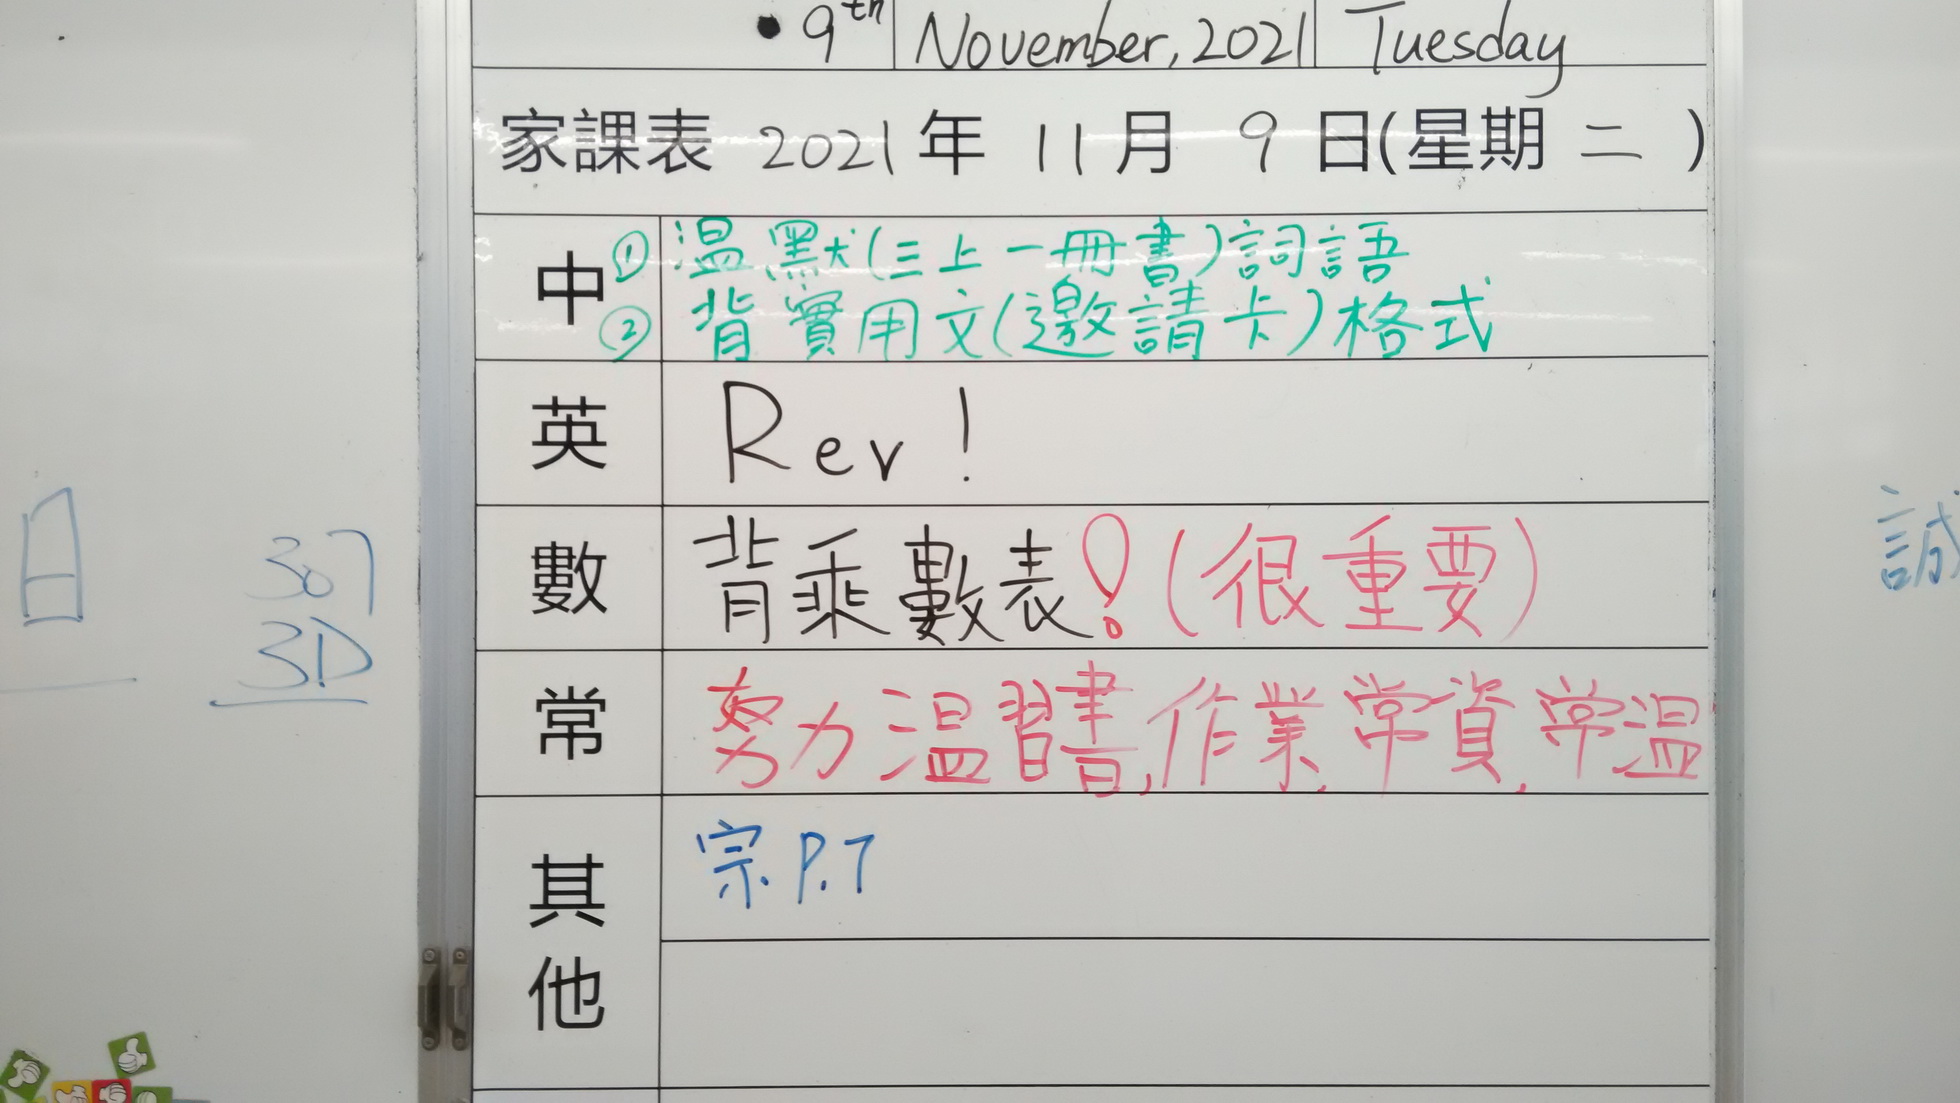 • 9th November, 2021 Tuesday
家課表 2021 年 11 月 9 日(星期 二 )
中 ① 温默(三上一冊書)詞語
② 背實用文(邀請卡)格式
英 Rev !
數 背乘數表!(很重要)
常 努力温習書,作業,常資,常温
其他 宗.P.7
日
307
3D
誠